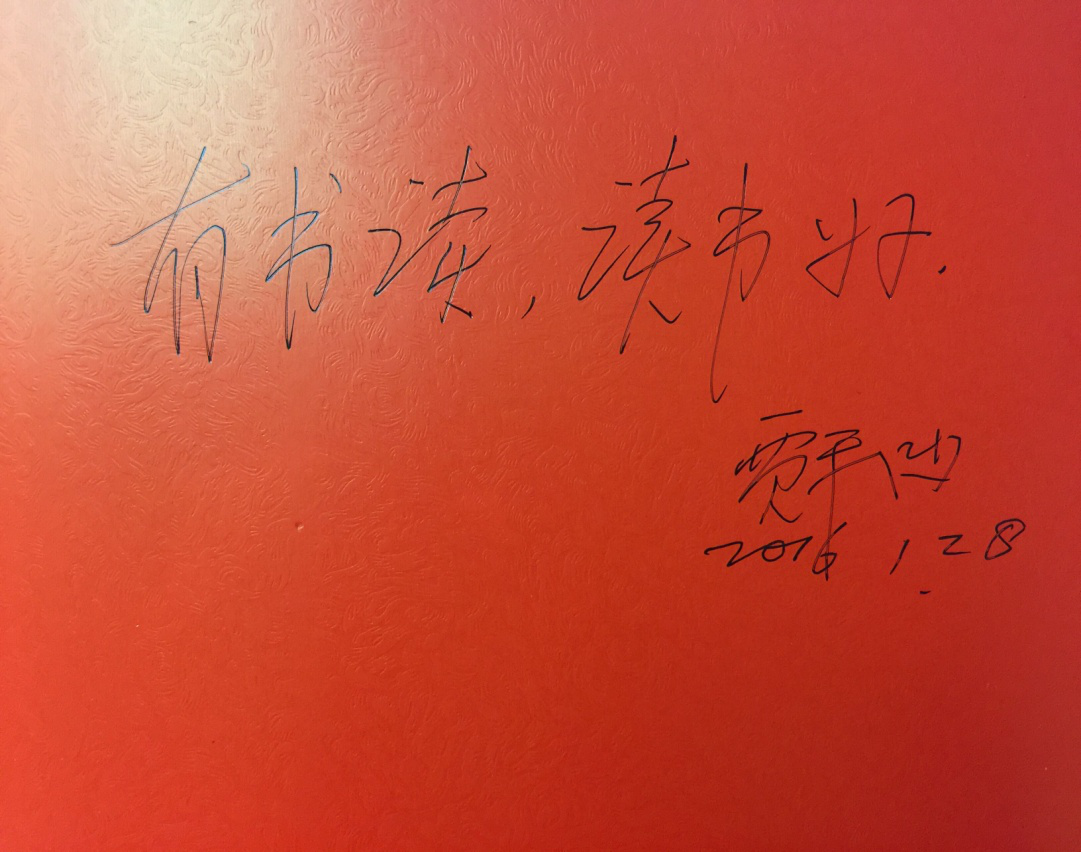 有书读,读书好.
贾平凹
2016.1.28